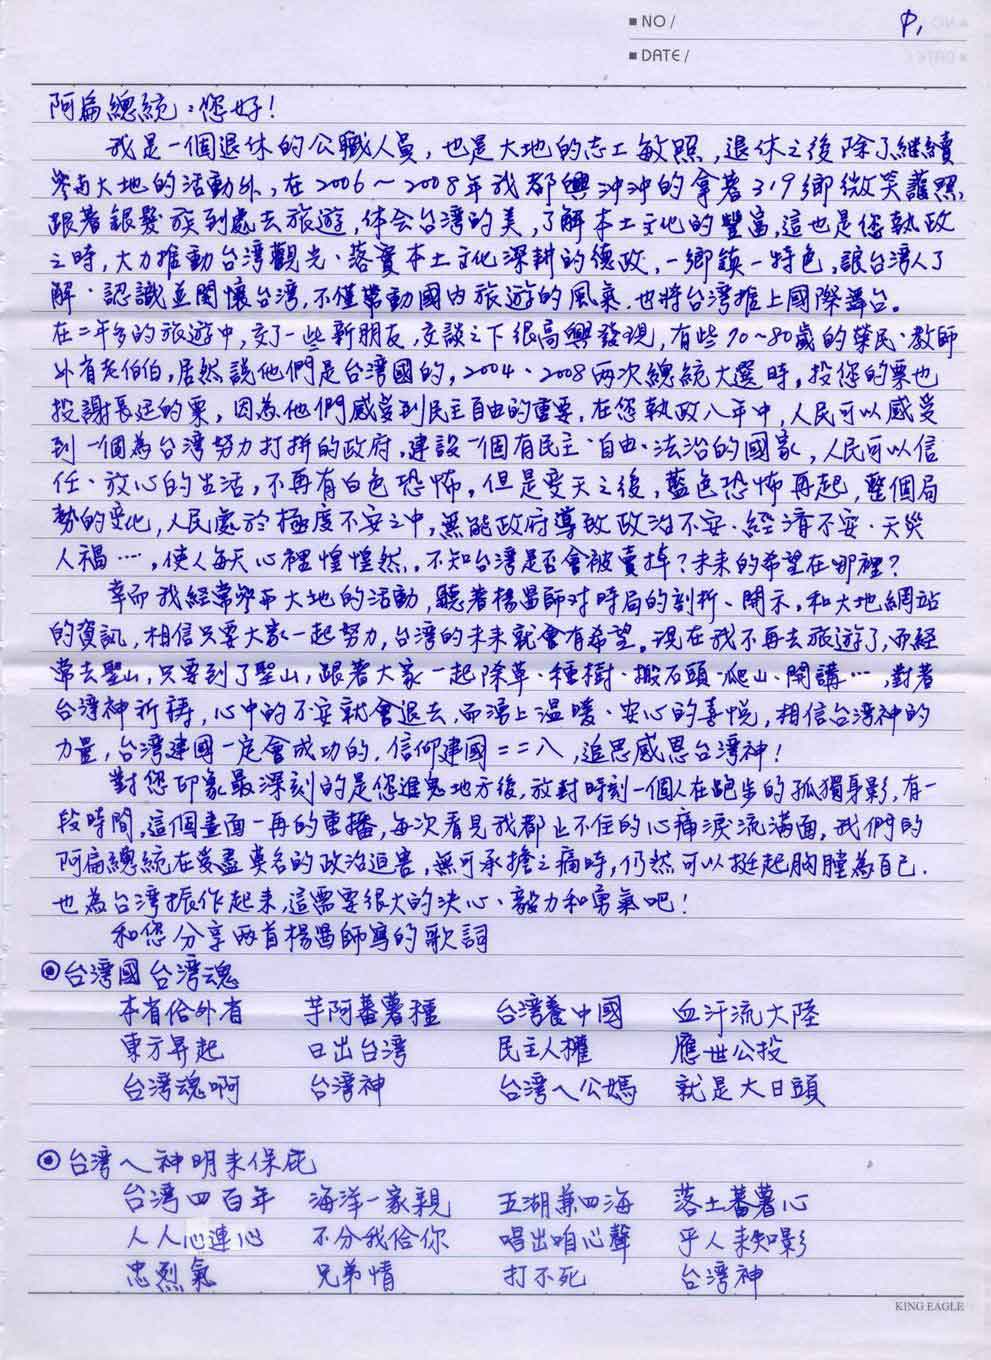 NO /
P1
DATE /
阿扁總統：您好!
我是一個退休的公職人員，也是大地的志工敏照，退休之後除了繼續
參與大地的活動外，在2006～2008年我都興沖沖的拿著319鄉微笑護照,
跟著銀髮族到處去旅遊，体会台湾的美，了解本土文化的豐富，這也是您執政
之時，大力推動台湾觀光、落實本土文化深耕的德政，一鄉鎮一特色，讓台湾人了
解、認識並関懷台湾，不僅帶動國內旅遊的風氣，也將台湾推上國際舞台。
在二年多的旅遊中，交了一些新朋友，交談之下很高興發現，有些70～80歲的榮民、教師
外省老伯伯，居然說他們是台湾國的，2004、2008兩次總統大選時，投您的票也
投謝長廷的票，因為他們感受到民主自由的重要，在您執政八年中，人民可以感受
到一個為台湾努力打拼的政府，建設一個有民主、自由、法治的國家，人民可以信
任、放心的生活，不再有白色恐怖，但是變天之後，藍色恐怖再起，整個局
勢的变化，人民處於極度不安之中，無能政府導致政治不安、經濟不安、天災
人禍…，使人每天心裡惶惶然，不知台湾是否會被賣掉？未來的希望在哪裡？
幸而我經常參与大地的活動，聽著楊晶師对時局的剖析、開示，和大地網站
的資訊，相信只要大家一起努力，台湾的未來就會有希望。現在我不再去旅遊了，而經
常去聖山，只要到了聖山，跟著大家一起除草、種樹、搬石頭、爬山、開講…，對著
台湾神祈禱，心中的不安就會退去，而湧上溫暖、安心的喜悅，相信台湾神的
力量，台湾建國一定會成功的，信仰建國二二八，追思感恩台湾神！
對您印象最深刻的是您進鬼地方後，放封時刻一個人在跑步的孤獨身影，有一
段時間，這個畫面一再的重播，每次看見我都止不住的心痛淚流滿面，我們的
阿扁總統在受盡莫名的政治迫害，無可承擔之痛時，仍然可以挺起胸膛為自己.
也為台湾振作起來，這需要很大的決心、毅力和勇氣吧！
和您分享兩首楊晶師寫的歌詞
◎台湾國台湾魂
本省佮外省 芋阿蕃薯種 台湾養中國 血汗流大陸
東方昇起 日出台湾 民主人權 應世公投
台湾魂啊 台湾神 台湾ㄟ公媽 就是大日頭
◎台湾ㄟ神明來保庇
台湾四百年 海洋一家親 五湖兼四海 落土蕃薯心
人人心連心 不分我佮你 唱出咱心聲 乎人來知影
忠烈氣 兄弟情 打不死 台湾神
KING EAGLE